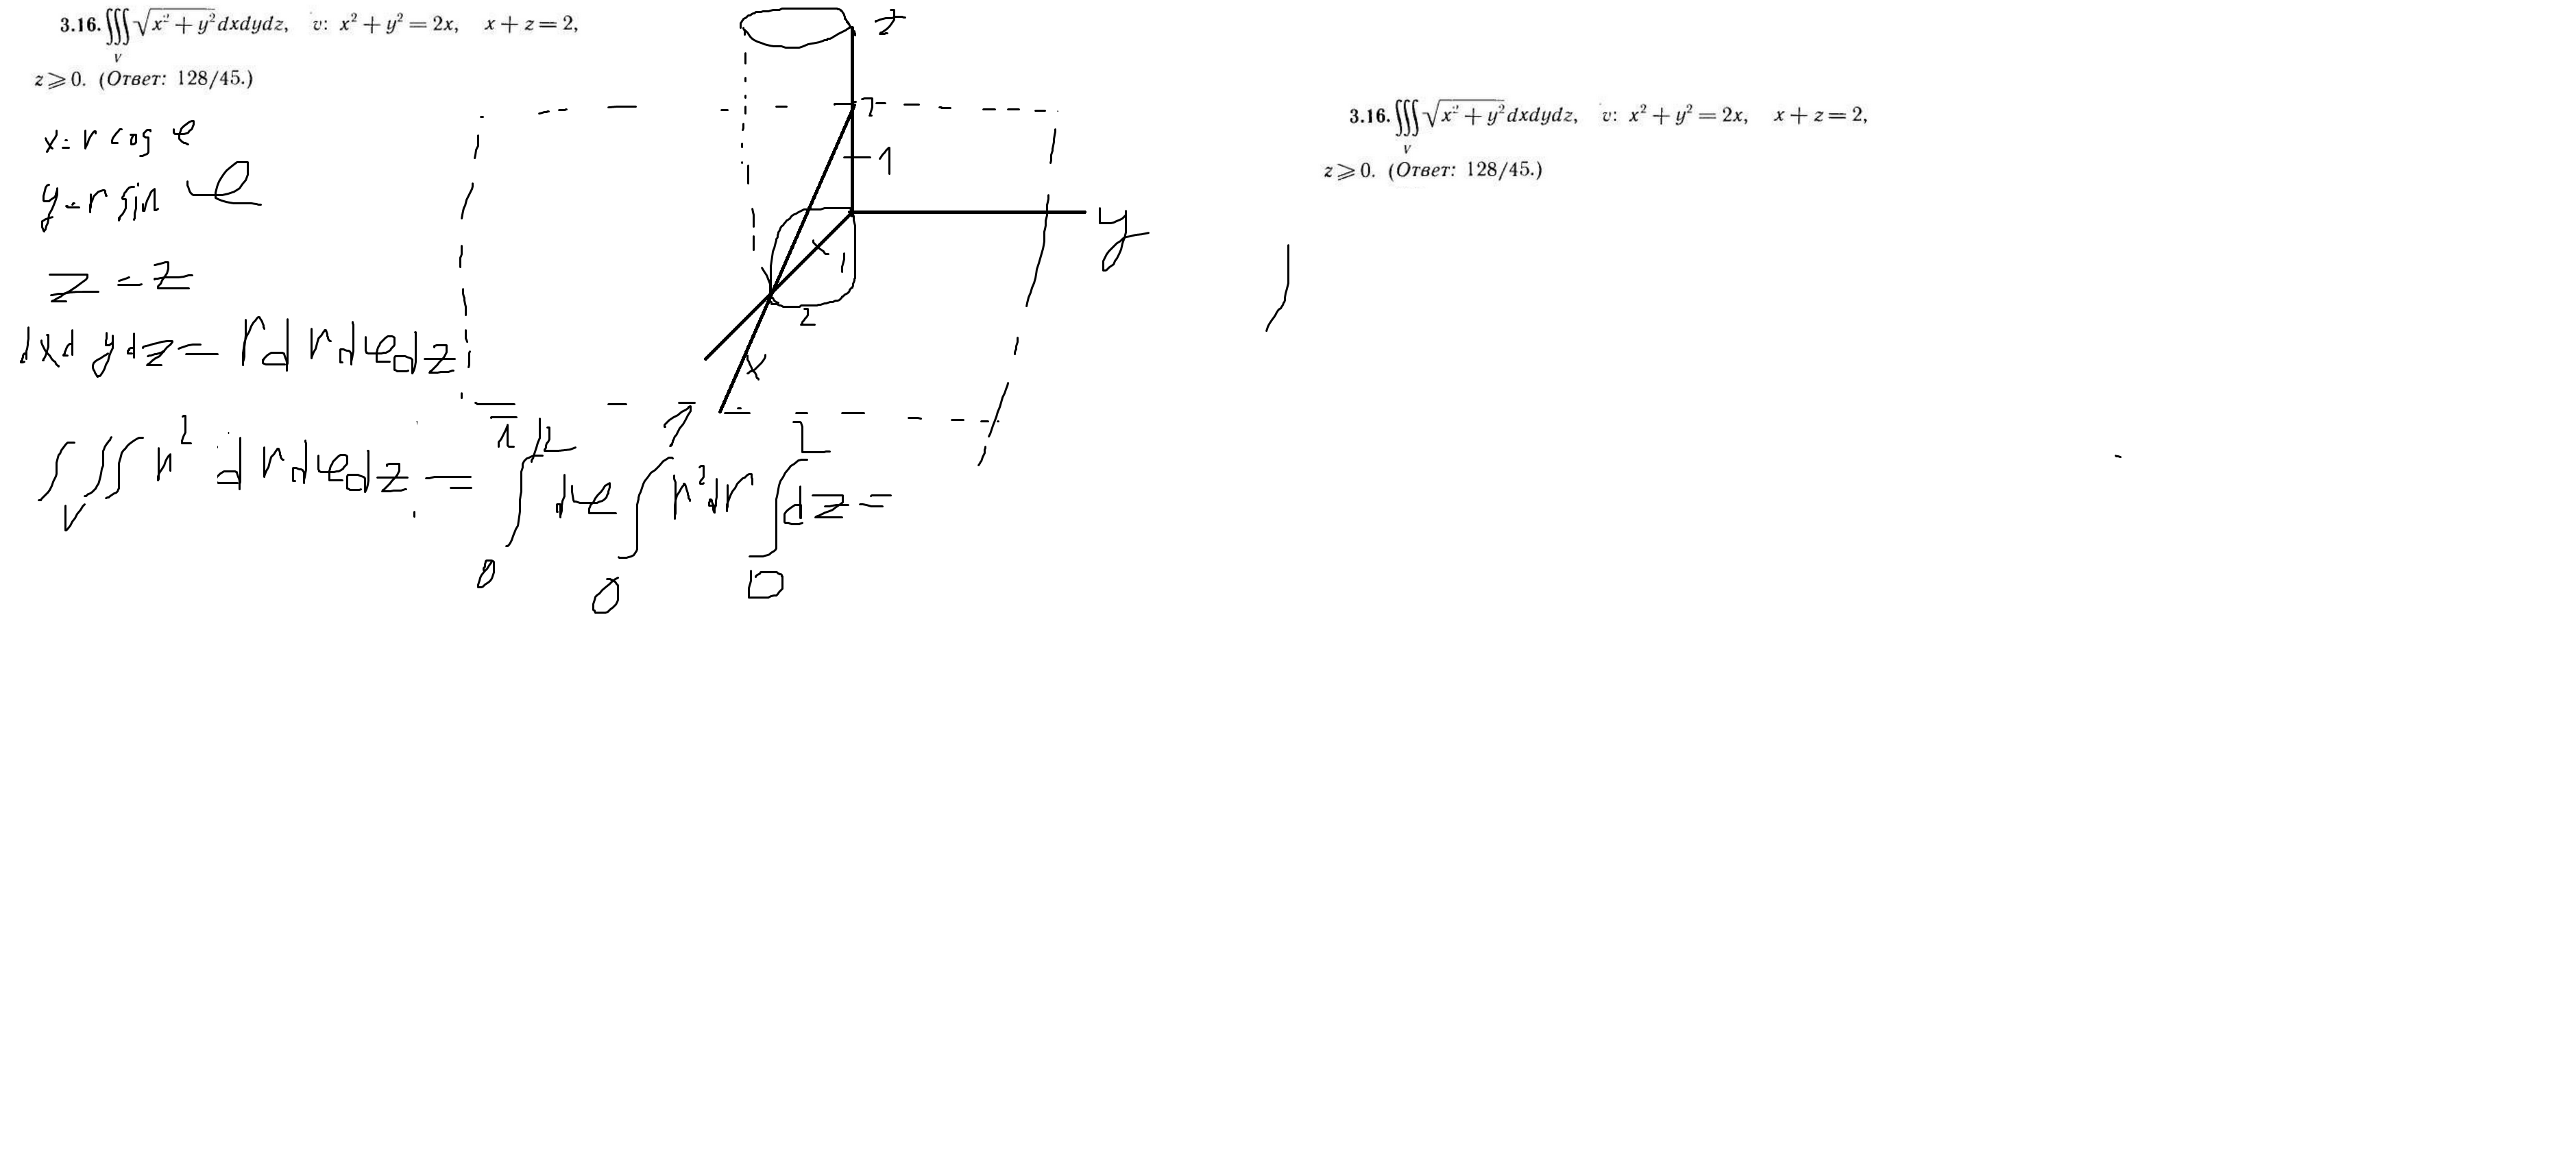 3.16. ∭_V √(x² + y²) dxdydz, v: x² + y² = 2x, x + z = 2,
z ⩾ 0. (Ответ: 128/45.)
x = r cos φ
y = r sin φ
z = z
dxdydz = r dr dφ dz
∭_V r² dr dφ dz = ∫_0^{π/2} dφ ∫_0^1 r² dr ∫_0^2 dz =
z
1
y
1
2
x
3.16. ∭_V √(x² + y²) dxdydz, v: x² + y² = 2x, x + z = 2,
z ⩾ 0. (Ответ: 128/45.)